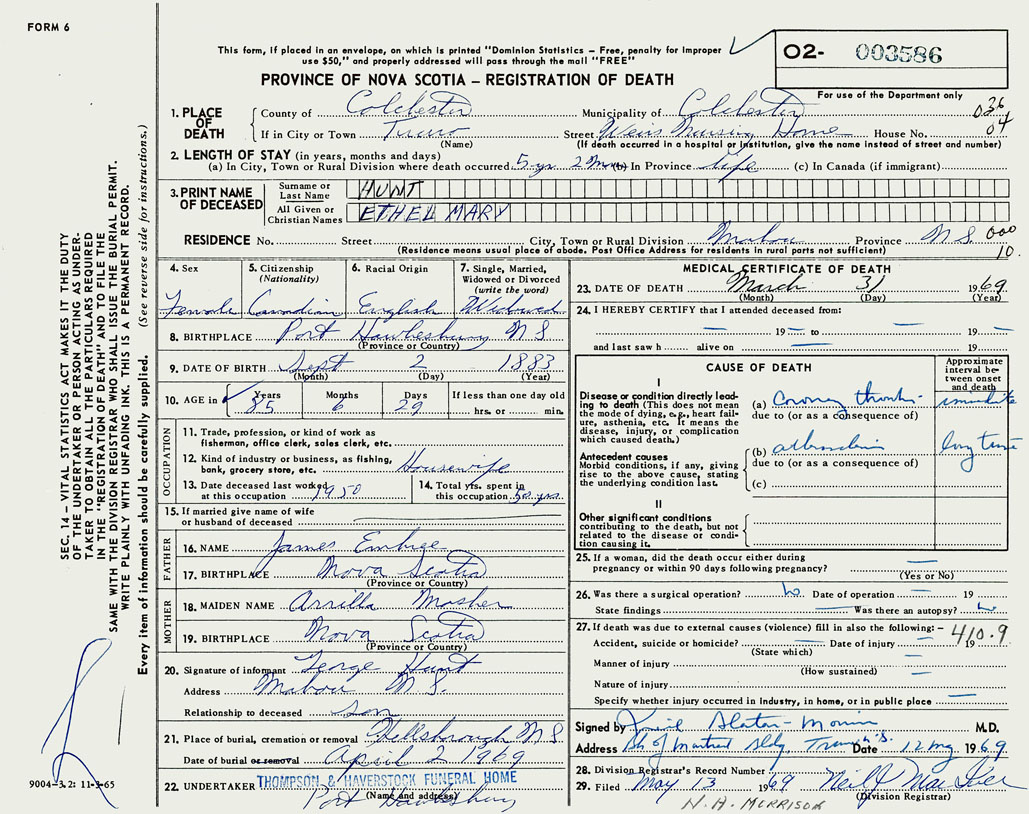 FORM 6
This form, if placed in an envelope, on which is printed "Dominion Statistics – Free, penalty for improper
use $50," and properly addressed will pass through the mail "FREE"
O2- 003586
PROVINCE OF NOVA SCOTIA – REGISTRATION OF DEATH
For use of the Department only
1. PLACE OF DEATH
County of Colchester Municipality of Colchester 036
If in City or Town Truro Street Weirs Nursing Home House No. 04
(Name) (If death occurred in a hospital or institution, give the name instead of street and number)
2. LENGTH OF STAY (in years, months and days)
(a) In City, Town or Rural Division where death occurred 5 yr. 2 Mns (b) In Province life (c) In Canada (if immigrant)
3. PRINT NAME OF DECEASED
Surname or Last Name HUNT
All Given or Christian Names ETHEL MARY
RESIDENCE No. Street City, Town or Rural Division Mabou Province N S 000
(Residence means usual place of abode. Post Office Address for residents in rural parts not sufficient) 10
4. Sex Female
5. Citizenship (Nationality) Canadian
6. Racial Origin English
7. Single, Married, Widowed or Divorced (write the word) Widowed
8. BIRTHPLACE Port Hawkesbury N S
(Province or Country)
9. DATE OF BIRTH Sept 2 1883
(Month) (Day) (Year)
10. AGE in Years 85 Months 6 Days 29 If less than one day old hrs. or min.
OCCUPATION
11. Trade, profession, or kind of work as
fisherman, office clerk, sales clerk, etc.
12. Kind of industry or business, as fishing,
bank, grocery store, etc. Housewife
13. Date deceased last worked at this occupation 1950
14. Total yrs. spent in this occupation 50 yrs.
15. If married give name of wife
or husband of deceased
FATHER
16. NAME James Embree
17. BIRTHPLACE Nova Scotia
(Province or Country)
MOTHER
18. MAIDEN NAME Arrilla Mosher
19. BIRTHPLACE Nova Scotia
(Province or Country)
20. Signature of informant George Hunt
Address Mabou N S.
Relationship to deceased son
21. Place of burial, cremation or removal Hillsborough N S
Date of burial or removal April 2 1969
22. UNDERTAKER THOMPSON & HAVERSTOCK FUNERAL HOME
(Name and address) Port Hawkesbury
MEDICAL CERTIFICATE OF DEATH
23. DATE OF DEATH March 31 1969.
(Month) (Day) (Year)
24. I HEREBY CERTIFY that I attended deceased from:
19 to 19
and last saw h alive on 19
CAUSE OF DEATH
Approximate interval between onset and death
I
Disease or condition directly leading to death (This does not mean the mode of dying, e.g., heart failure, asthenia, etc. It means the disease, injury, or complication which caused death.)
(a) Coronary thrombosis immediate
due to (or as a consequence of)
Antecedent causes
Morbid conditions, if any, giving rise to the above cause, stating the underlying condition last.
(b) long time
due to (or as a consequence of)
(c)
II
Other significant conditions
contributing to the death, but not related to the disease or condition causing it.
25. If a woman, did the death occur either during
pregnancy or within 90 days following pregnancy?
(Yes or No)
26. Was there a surgical operation? No. Date of operation 19
State findings Was there an autopsy? No
27. If death was due to external causes (violence) fill in also the following: – 410.9
Accident, suicide or homicide? Date of injury 19
(State which)
Manner of injury
(How sustained)
Nature of injury
Specify whether injury occurred in Industry, in home, or in public place
Signed by M.D.
Address Bk of Montreal Bldg, Truro N.S. Date 12 1969
28. Division Registrar's Record Number
29. Filed May 13 1969 Neil
(Division Registrar)
N. A. MORRISON
9004-3.2: 11-3-65
SEC. 14 – VITAL STATISTICS ACT MAKES IT THE DUTY
OF THE UNDERTAKER OR PERSON ACTING AS UNDER-
TAKER TO OBTAIN ALL THE PARTICULARS REQUIRED
IN THE "REGISTRATION OF DEATH" AND TO FILE THE
SAME WITH THE DIVISION REGISTRAR WHO SHALL ISSUE THE BURIAL PERMIT.
WRITE PLAINLY WITH UNFADING INK. THIS IS A PERMANENT RECORD.
Every item of information should be carefully supplied. (See reverse side for instructions.)